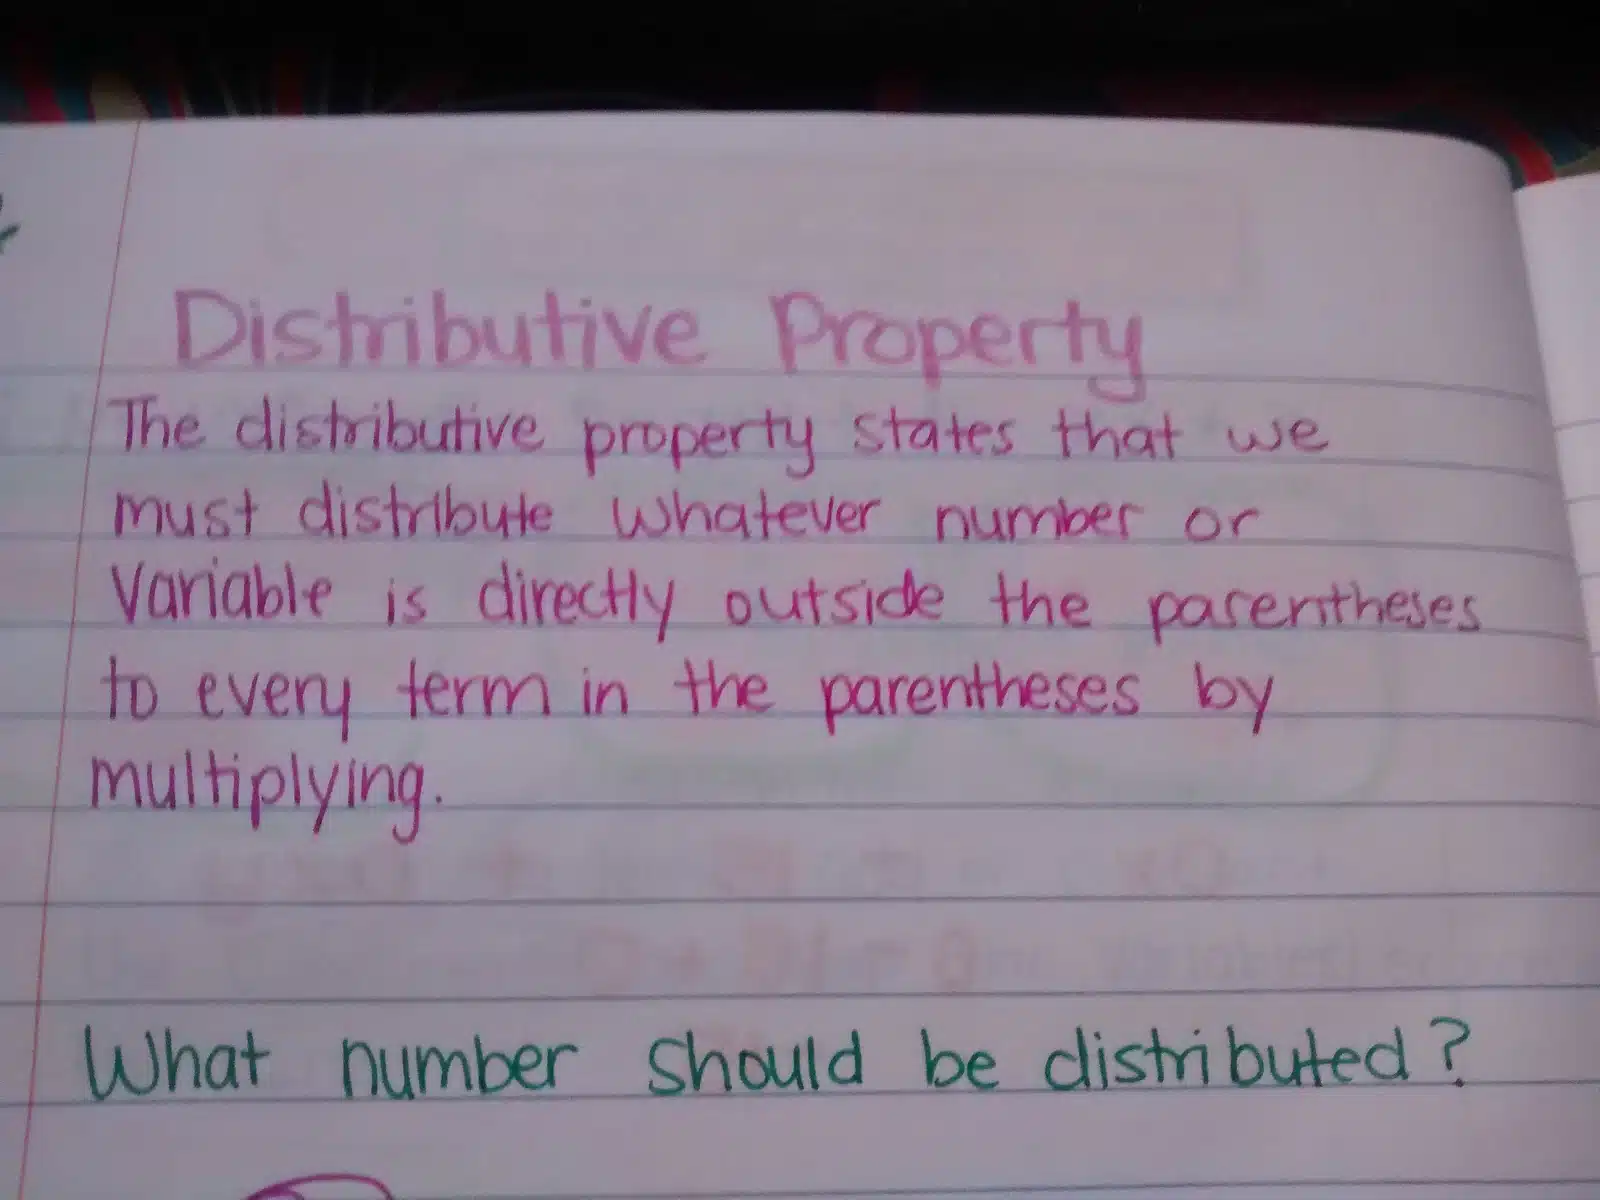 Distributive Property
The distributive property states that we
must distribute whatever number or
variable is directly outside the parentheses
to every term in the parentheses by
multiplying.
What number should be distributed?